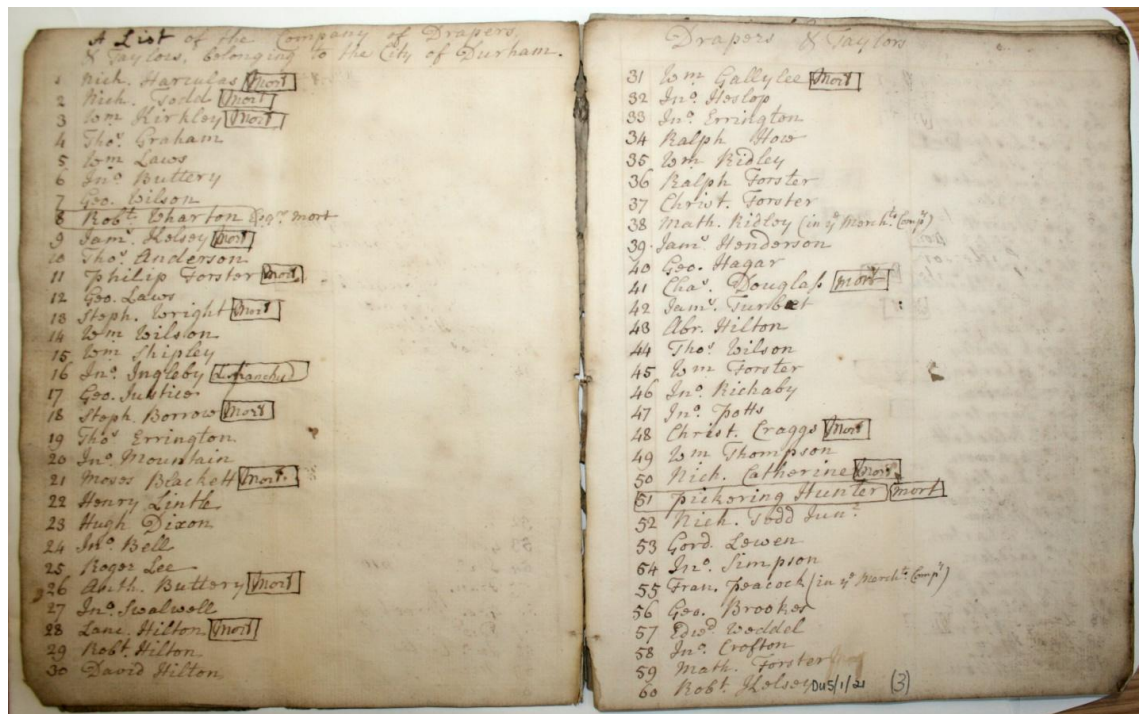 A List of the Company of Drapers,
& Taylors, belonging to the City of Durham.
1 Nich. Harculas Mort
2 Nich. Todd Mort
3 Wm Kirkley Mort
4 Thos. Graham
5 Wm Laws
6 Jno. Buttery
7 Geo. Wilson
8 Robt. Wharton Esqr. Mort
9 Jams. Kelsey Mort
10 Thos. Anderson
11 Philip Forster Mort
12 Geo. Laws
13 Steph. Wright Mort
14 Wm Wilson
15 Wm Shipley
16 Jno. Ingleby
17 Geo. Justice
18 Steph. Borrow Mort
19 Thos. Errington
20 Jno. Mountain
21 Moses Blackett Mort.
22 Henry Lintle
23 Hugh Dixon
24 Jno. Bell
25 Roger Lee
26 Anth. Buttery Mort
27 Jno. Swalwell
28 Lanc. Hilton Mort
29 Robt. Hilton
30 David Hilton
Drapers & Taylors
31 Wm Gallylee Mort
32 Jno. Heslop
33 Jno. Errington
34 Ralph How
35 Wm Ridley
36 Ralph Forster
37 Christ. Forster
38 Math. Ridley (in ye Merchts. Compy)
39 Jams. Henderson
40 Geo. Hagar
41 Chas. Douglass Mort
42 Jams. Turbet
43 Abr. Hilton
44 Thos. Wilson
45 Wm Forster
46 Jno. Richaby
47 Jno. Potts
48 Christ. Craggs Mort
49 Wm Thompson
50 Nich. Catherine Mort
51 Pickering Hunter Mort
52 Nich. Todd Junr.
53 Gord. Lewen
54 Jno. Simpson
55 Fran. Peacock (in ye Merchts. Compy)
56 Geo. Brookes
57 Edwd. Weddel
58 Jno. Crofton
59 Math. Forster Mort
60 Robt. Kelsey DU5/1/21 (3)